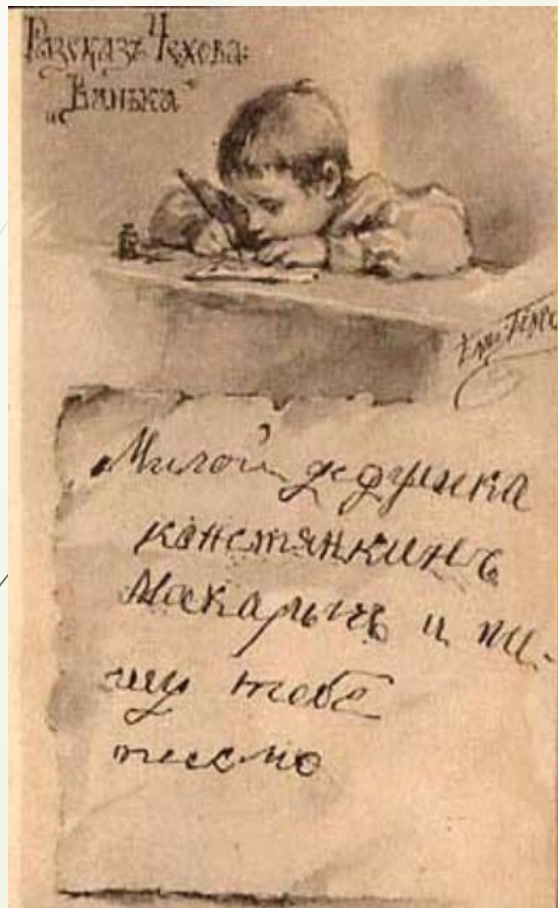 Разсказъ Чехова:
„Ванька“
Милой дедушка
констянкинъ
Макарычъ и пи-
шу тебе
писмо